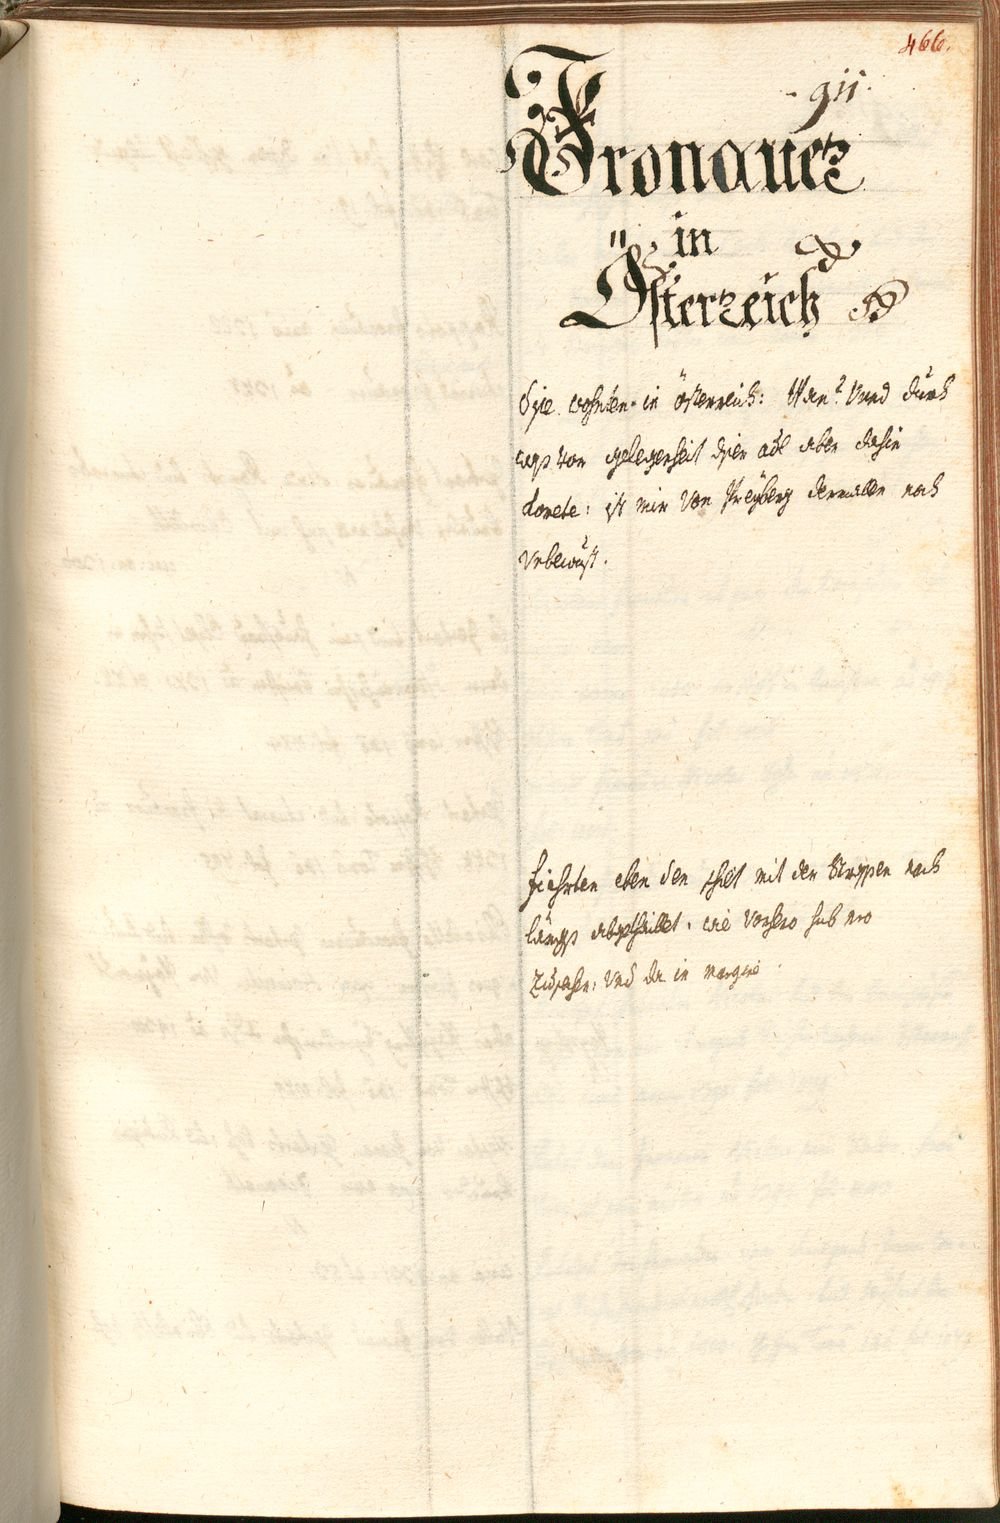 466.
911.
Fronauer
in
Österreich
Sÿe wohnten in Österreich: Wan? Vnd durch
was vor gelegenheit dieer ast aber dahin
komete: ist mir von Preÿberg dermallen noch
vnbewust.
fiehrten eben den schilt mit der Strappen nach
längs abgetheillet. wie vorhero sub nro
zusehen: vnd da in margine